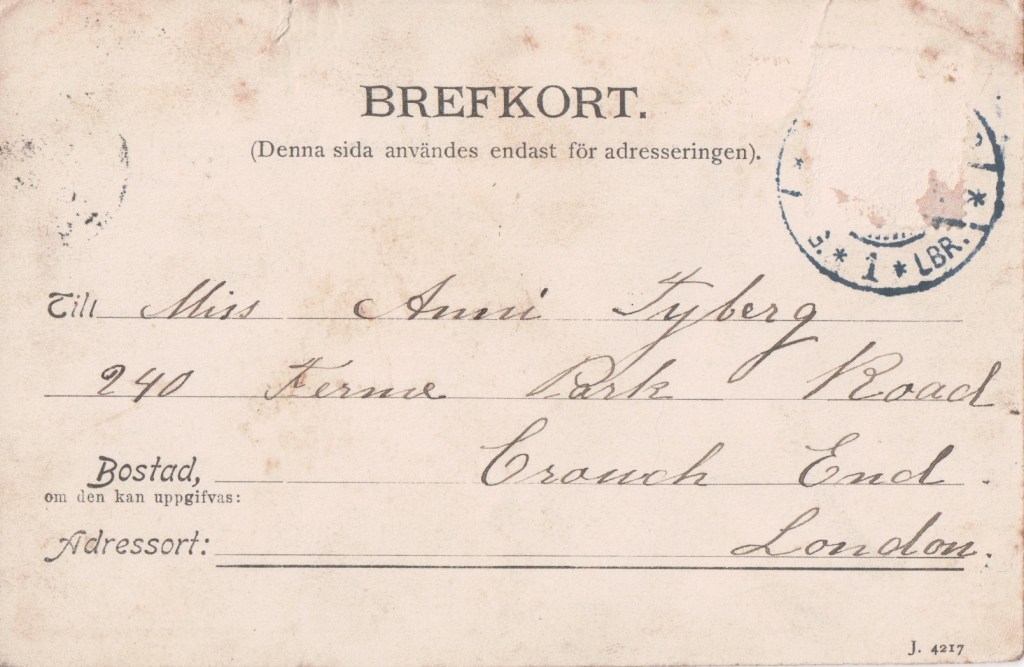 BREFKORT.
(Denna sida användes endast för adresseringen).
* 1 * LBR. *
Till Miss Anni Tyberg
240 Ferme Park Road
Bostad, Crouch End.
om den kan uppgifvas:
Adressort: London.
J. 4217